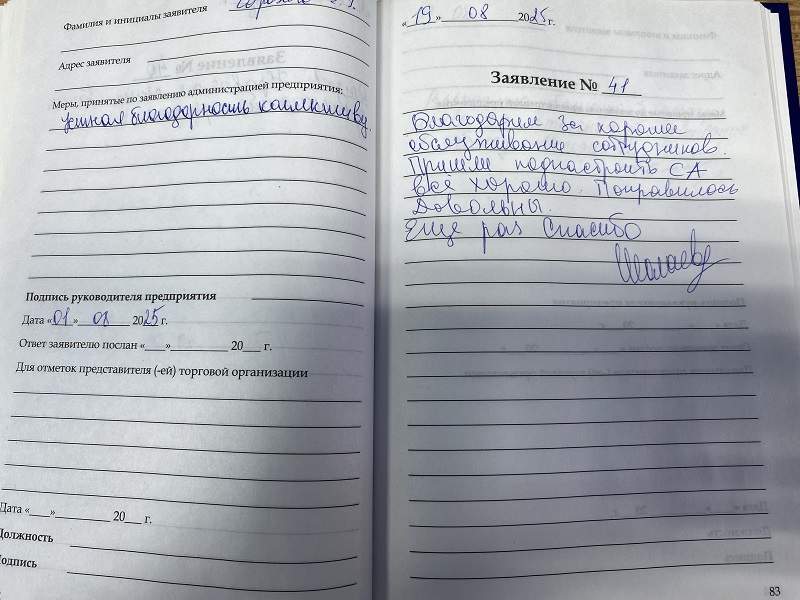 Фамилия и инициалы заявителя
Адрес заявителя
Меры, принятые по заявлению администрацией предприятия:
устная благодарность коллективу.
Подпись руководителя предприятия
Дата «01» 08 2025 г.
Ответ заявителю послан «___»__________ 20___ г.
Для отметок представителя (-ей) торговой организации
Дата «___»__________ 20___ г.
Должность
Подпись
«19» 08 2025 г.
Заявление № 41
Благодарим за хорошее
обслуживание сотрудников.
Пришли поднастроить СА
всё хорошо. Понравилось
Довольны.
Еще раз Спасибо
83